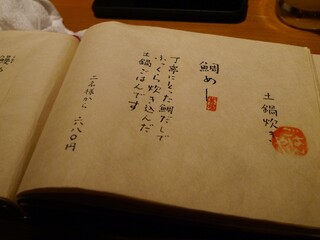 土鍋炊き
鯛めし
丁寧にとった鯛だしで
ふっくら炊き込んだ
土鍋ごはんです
二名様から 六八〇円